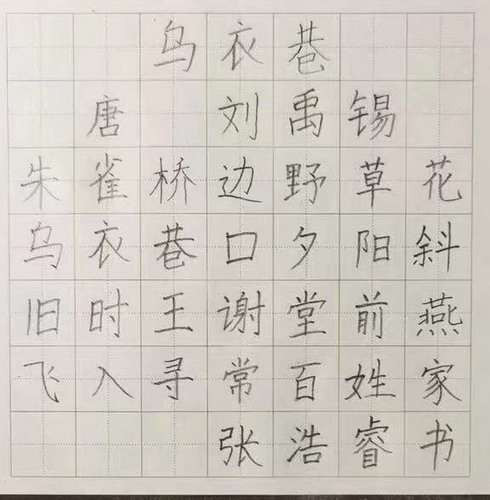 乌衣巷
唐 刘禹锡
朱雀桥边野草花
乌衣巷口夕阳斜
旧时王谢堂前燕
飞入寻常百姓家
张浩睿书